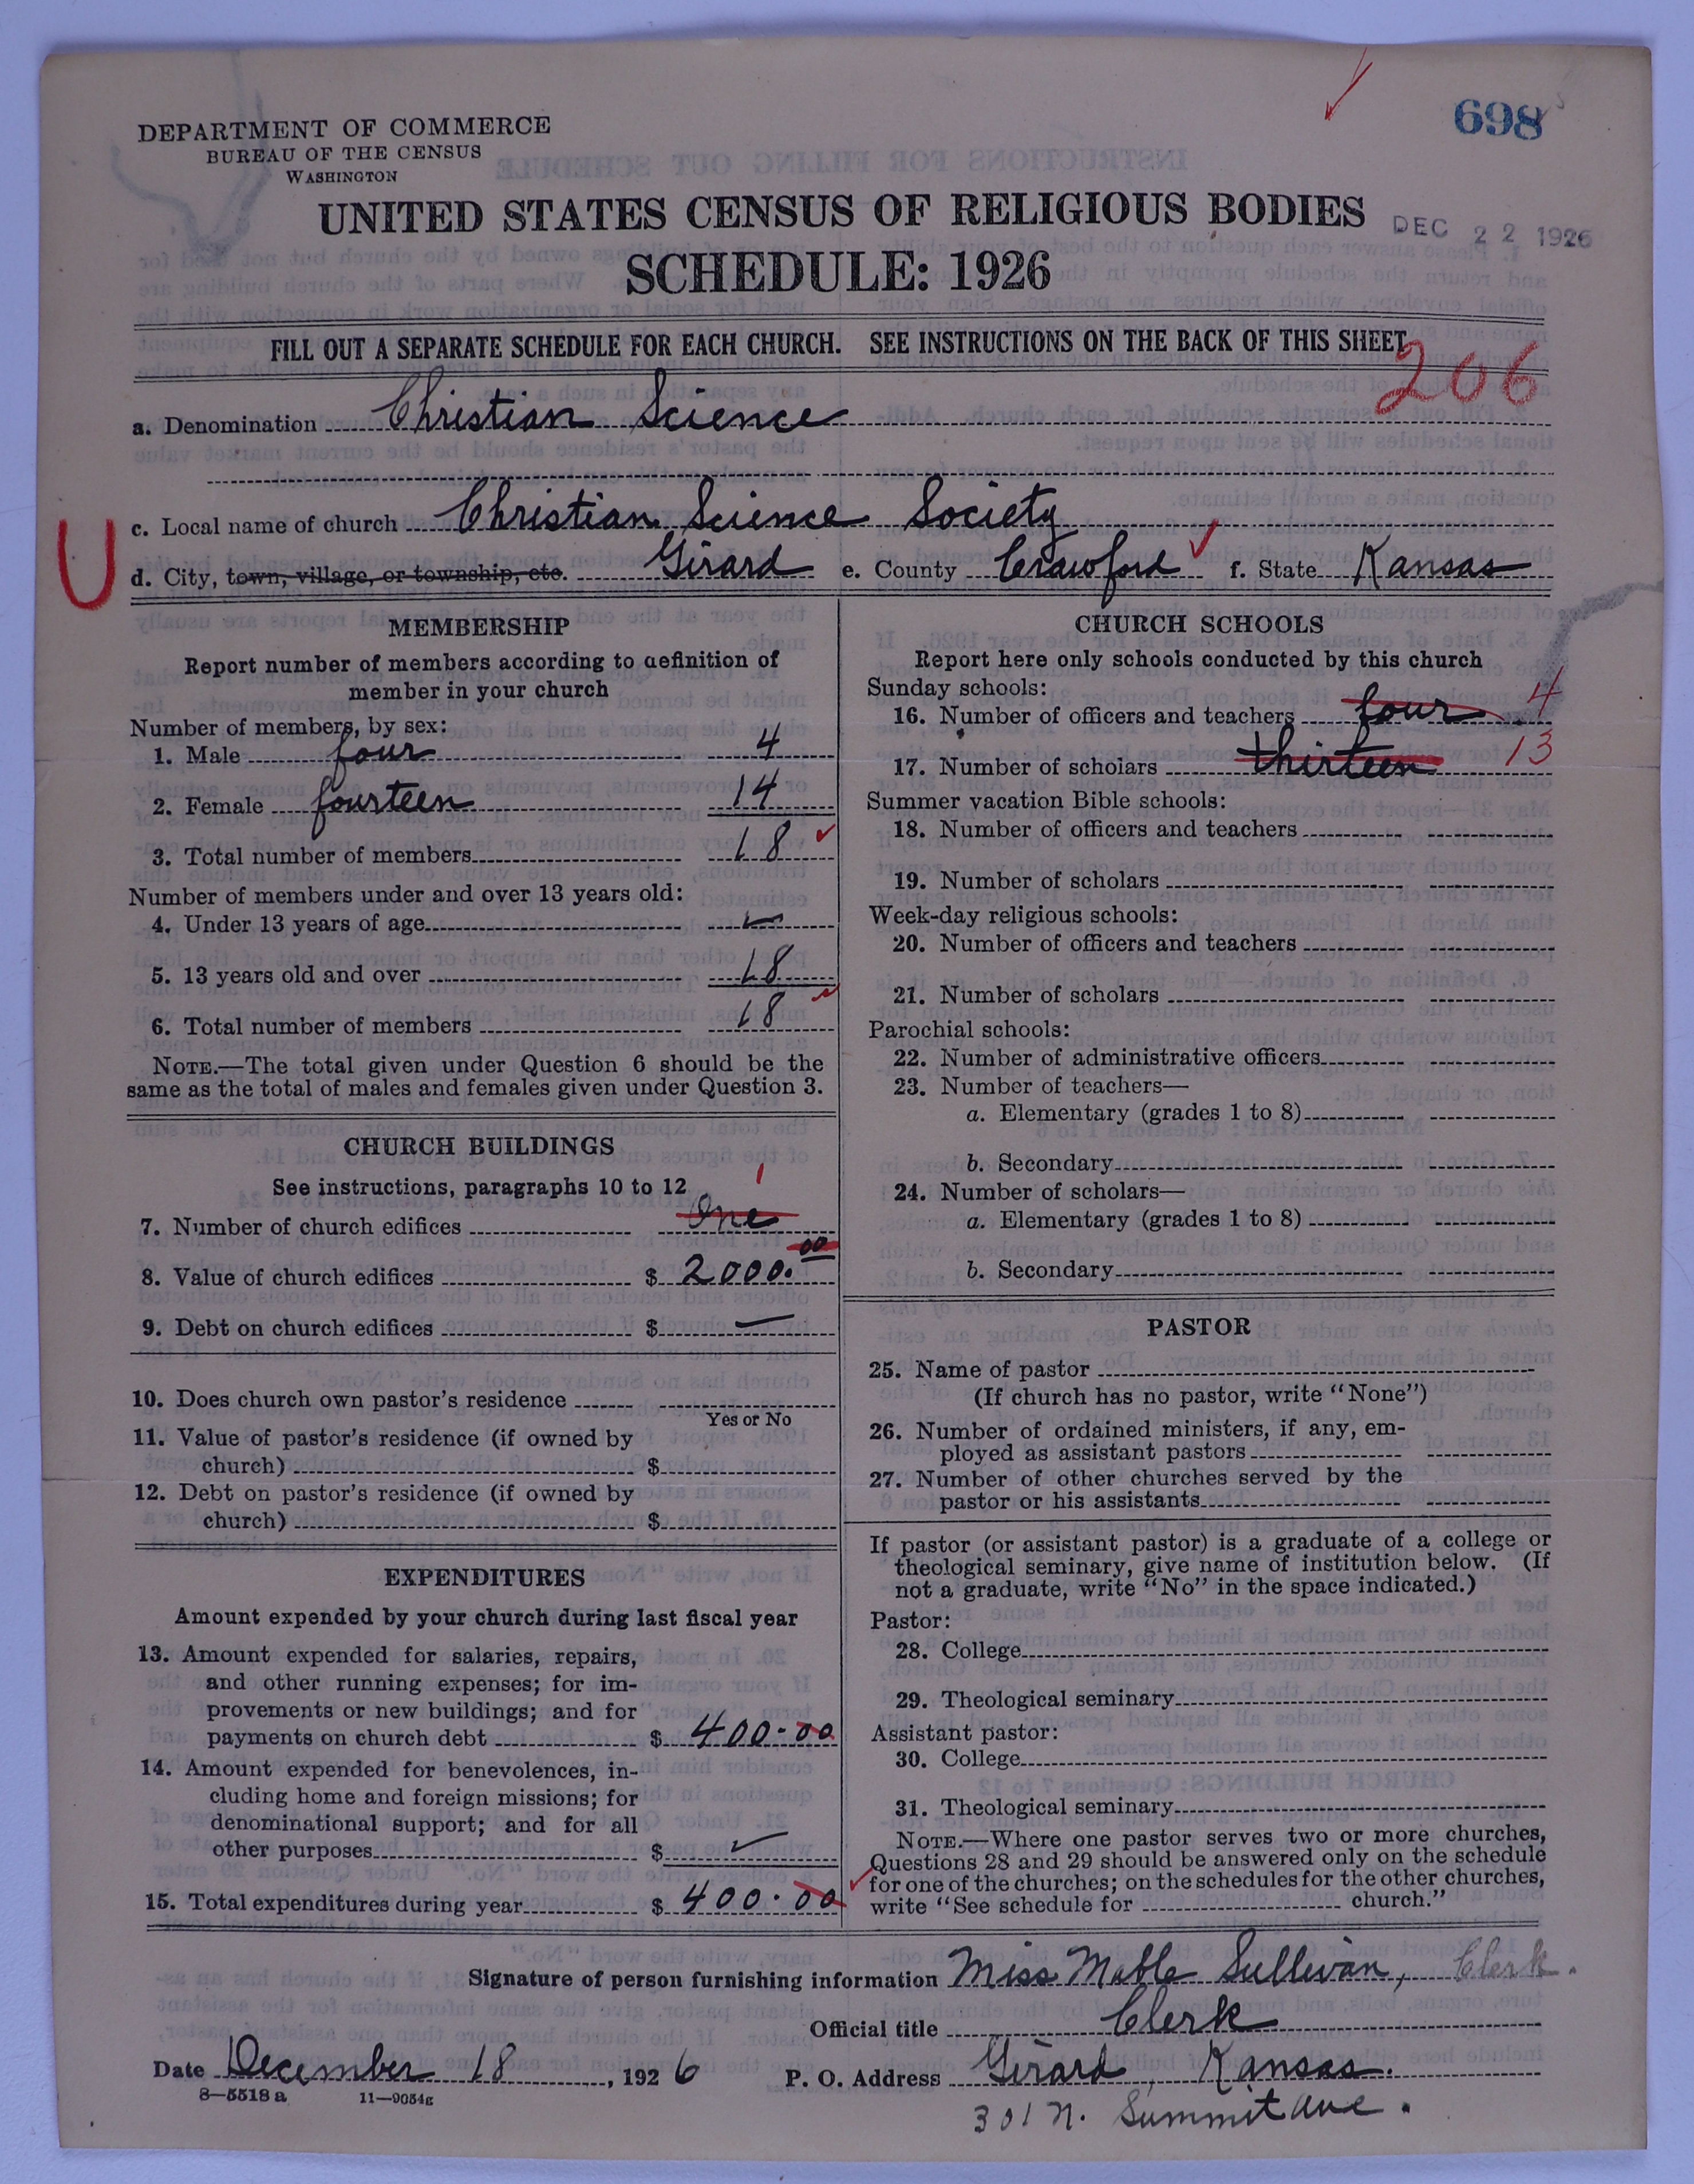 698
DEPARTMENT OF COMMERCE
BUREAU OF THE CENSUS
WASHINGTON
UNITED STATES CENSUS OF RELIGIOUS BODIES
DEC 22 1926
SCHEDULE: 1926
FILL OUT A SEPARATE SCHEDULE FOR EACH CHURCH. SEE INSTRUCTIONS ON THE BACK OF THIS SHEET
206
a. Denomination Christian Science
c. Local name of church Christian Science Society
U
d. City, town, village, or township, etc. Girard e. County Crawford f. State Kansas
MEMBERSHIP
Report number of members according to definition of
member in your church
Number of members, by sex:
1. Male four 4
2. Female fourteen 14
3. Total number of members 18
Number of members under and over 13 years old:
4. Under 13 years of age
5. 13 years old and over 18
6. Total number of members 18
NOTE.—The total given under Question 6 should be the
same as the total of males and females given under Question 3.
CHURCH BUILDINGS
See instructions, paragraphs 10 to 12
1
7. Number of church edifices One
8. Value of church edifices $ 2000.00
9. Debt on church edifices $ —
10. Does church own pastor's residence
Yes or No
11. Value of pastor's residence (if owned by
church) $
12. Debt on pastor's residence (if owned by
church) $
EXPENDITURES
Amount expended by your church during last fiscal year
13. Amount expended for salaries, repairs,
and other running expenses; for im-
provements or new buildings; and for
payments on church debt $ 400.00
14. Amount expended for benevolences, in-
cluding home and foreign missions; for
denominational support; and for all
other purposes $
15. Total expenditures during year $ 400.00
CHURCH SCHOOLS
Report here only schools conducted by this church
Sunday schools:
16. Number of officers and teachers four 4
17. Number of scholars thirteen 13
Summer vacation Bible schools:
18. Number of officers and teachers
19. Number of scholars
Week-day religious schools:
20. Number of officers and teachers
21. Number of scholars
Parochial schools:
22. Number of administrative officers
23. Number of teachers—
a. Elementary (grades 1 to 8)
b. Secondary
24. Number of scholars—
a. Elementary (grades 1 to 8)
b. Secondary
PASTOR
25. Name of pastor
(If church has no pastor, write "None")
26. Number of ordained ministers, if any, em-
ployed as assistant pastors
27. Number of other churches served by the
pastor or his assistants
If pastor (or assistant pastor) is a graduate of a college or
theological seminary, give name of institution below. (If
not a graduate, write "No" in the space indicated.)
Pastor:
28. College
29. Theological seminary
Assistant pastor:
30. College
31. Theological seminary
NOTE.—Where one pastor serves two or more churches,
Questions 28 and 29 should be answered only on the schedule
for one of the churches; on the schedules for the other churches,
write "See schedule for church."
Signature of person furnishing information Miss Mable Sullivan, Clerk.
Official title Clerk
Date December 18, 1926 P. O. Address Girard, Kansas.
8—5518a 11—9054g
301 N. Summit Ave.